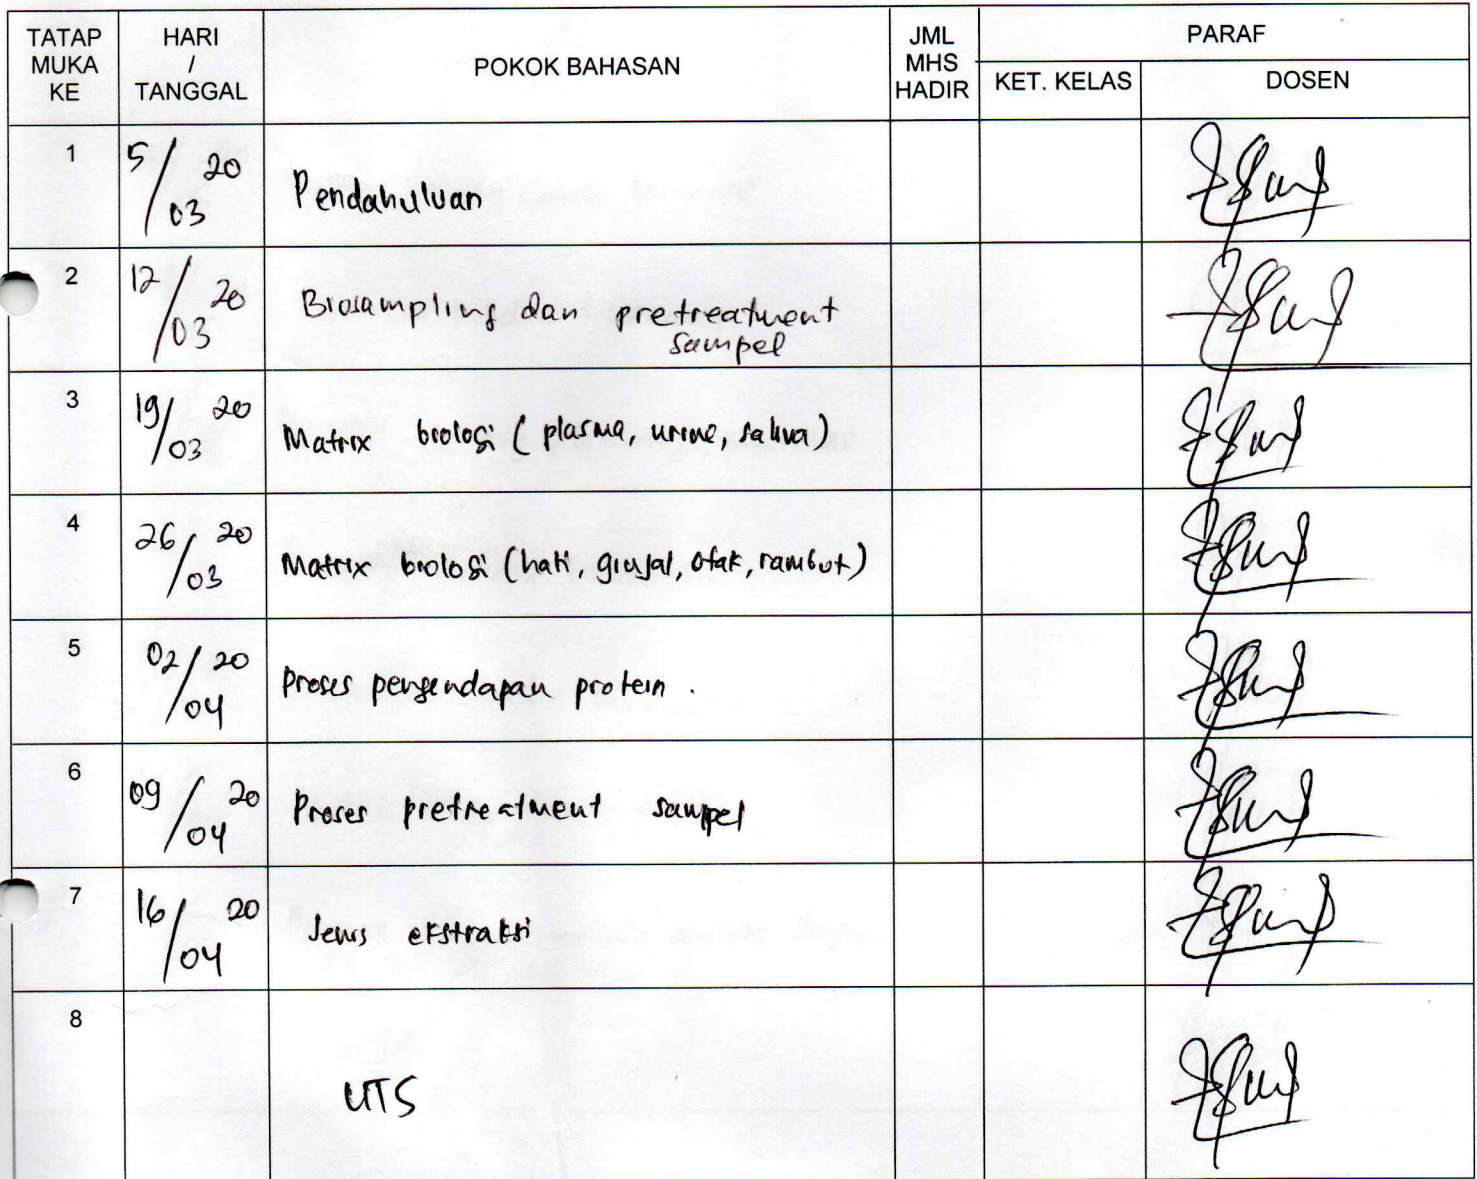 TATAP MUKA KE
HARI / TANGGAL
POKOK BAHASAN
JML MHS HADIR
PARAF
KET. KELAS
DOSEN
1
5/03 20
Pendahuluan
2
12/03 20
Biosampling dan pretreatment
sampel
3
19/03 20
Matrix biologi (plasma, urine, saliva)
4
26/03 20
Matrix biologi (hati, ginjal, otak, rambut)
5
02/04 20
Proses pengendapan protein.
6
09/04 20
Proses pretreatment sampel
7
16/04 20
Jenis ekstraksi
8
UTS